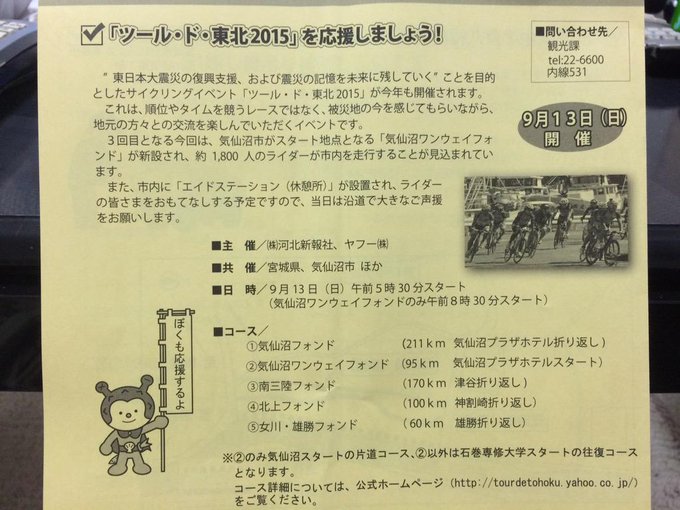 「ツール・ド・東北2015」を応援しましょう！
■問い合わせ先／
観光課
tel:22-6600
内線531
“東日本大震災の復興支援、および震災の記憶を未来に残していく”ことを目的
としたサイクリングイベント「ツール・ド・東北2015」が今年も開催されます。
これは、順位やタイムを競うレースではなく、被災地の今を感じてもらいながら、
地元の方々との交流を楽しんでいただくイベントです。
３回目となる今回は、気仙沼市がスタート地点となる「気仙沼ワンウェイフォ
ンド」が新設され、約1,800人のライダーが市内を走行することが見込まれてい
ます。
また、市内に「エイドステーション（休憩所）」が設置され、ライダー
の皆さまをおもてなしする予定ですので、当日は沿道で大きなご声援
をお願いします。
９月１３日（日）
開催
■主　催／㈱河北新報社、ヤフー㈱
■共　催／宮城県、気仙沼市 ほか
■日　時／９月13日（日）午前５時30分スタート
（気仙沼ワンウェイフォンドのみ午前８時30分スタート）
■コース／
①気仙沼フォンド　（211ｋｍ　気仙沼プラザホテル折り返し）
②気仙沼ワンウェイフォンド　（95ｋｍ　気仙沼プラザホテルスタート）
③南三陸フォンド　（170ｋｍ　津谷折り返し）
④北上フォンド　（100ｋｍ　神割崎折り返し）
⑤女川・雄勝フォンド　（60ｋｍ　雄勝折り返し）
ぼくも応援するよ
※②のみ気仙沼スタートの片道コース、②以外は石巻専修大学スタートの往復コース
となります。
コース詳細については、公式ホームページ（http://tourdetohoku.yahoo.co.jp/）
をご覧ください。